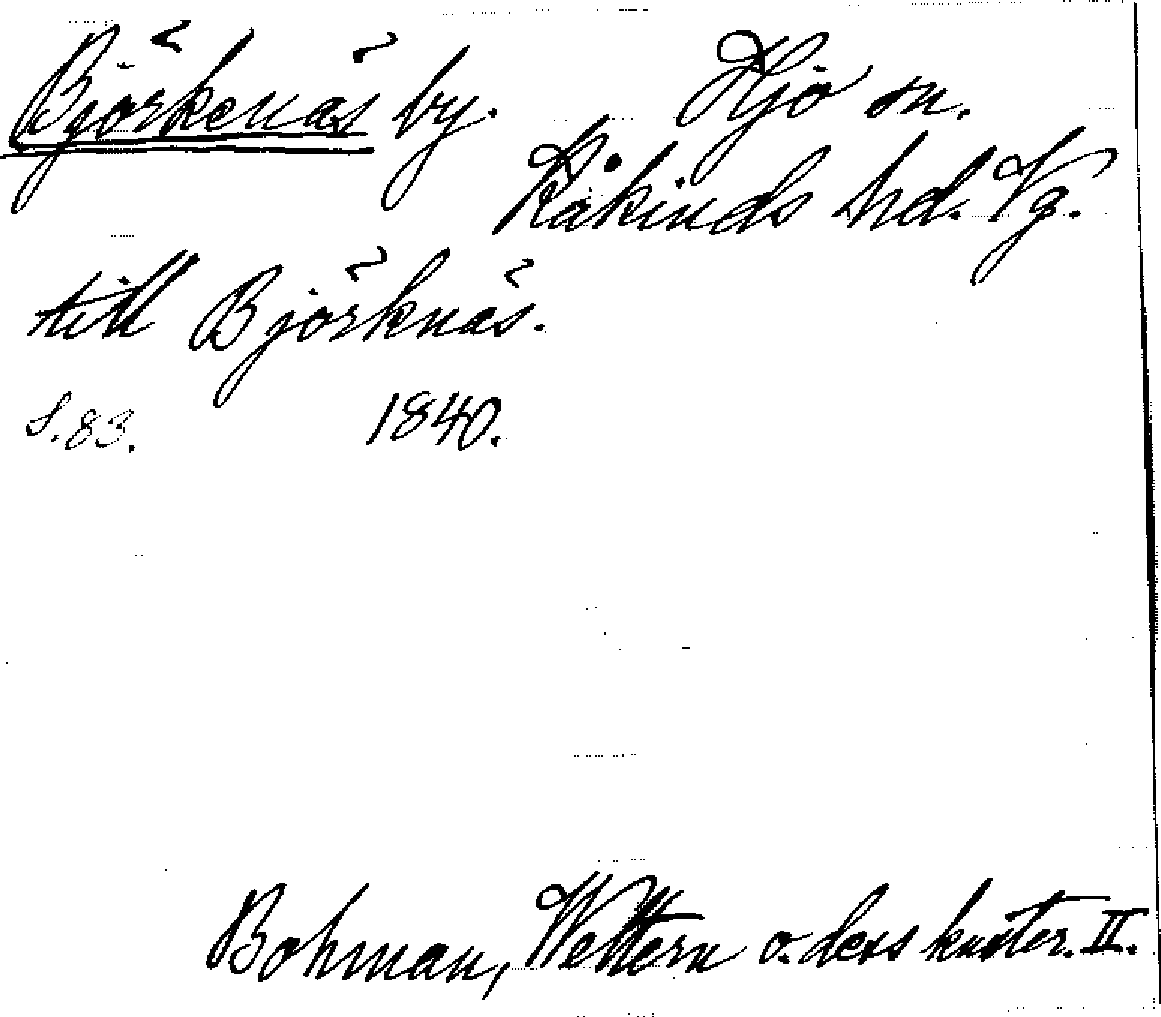 Björkenäs by. Hjo sn.
Kåkinds hd. Vg.
till Björknäs.
S. 83. 1840.
Bohman, Wettern o. dess kuster. II.